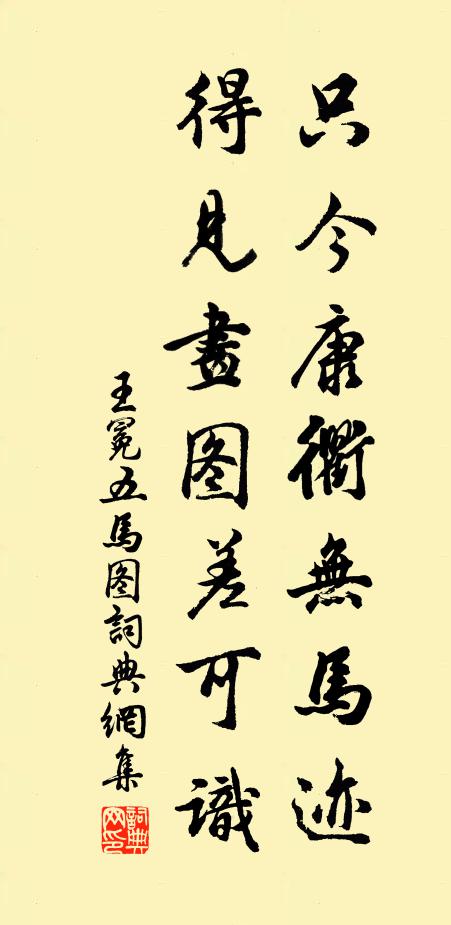 只今康衢無馬迹
得見畫图差可識
王冕五馬图詞典網集
詞典
网印